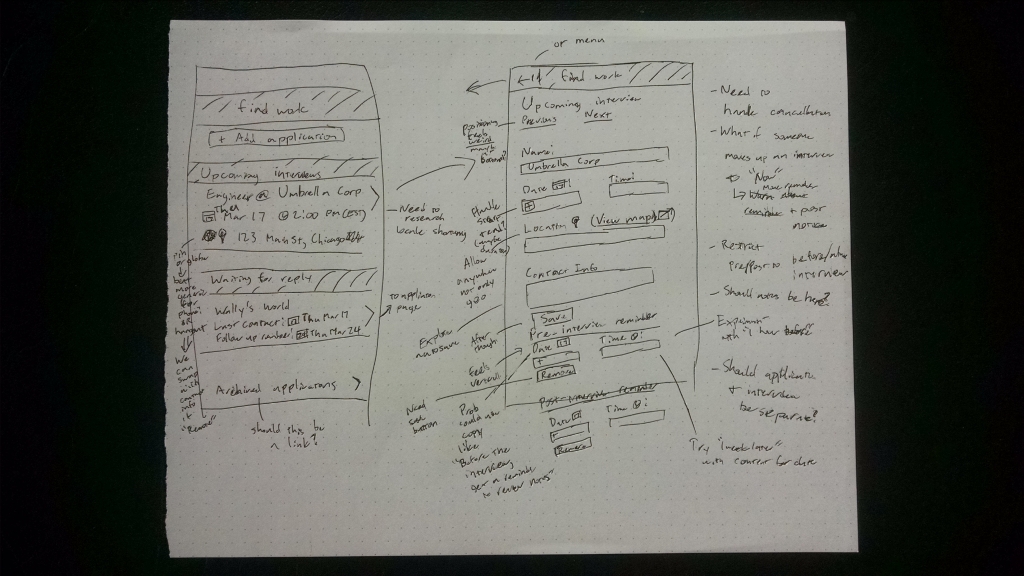 or menu
Find work
+ Add application
Upcoming interviews
Engineer @ Umbrella Corp
Thu
Mar 17 @ 2:00 PM (EST)
123 Main St, Chicago
Waiting for reply
Wally's World
Last contact: Thu Mar 17
Follow up reminder: Thu Mar 24
Archived applications
should this be
a link?
Pin
or globe
better
more
generic
for
phone
or
hangout
We
can
swap
with
contact
info
if
"Remote"
Need to
research
locale shortening
to application
page
Find work
Upcoming interview
Previous Next
Name:
Umbrella Corp
Date Time:
Location (View map)
Contact Info
Save
Pre-interview reminder
Date Time:
+
Remove
Post-interview reminder
Date Time:
+
Remove
Positioning
feels
weird
maybe
bottom?
Handle
start
+ end?
(maybe
duration?)
Allow
anywhere
not only
geo
Explore
autosave
After
much
Feels
vertical
Need
save
button
Prob
could use
copy
like
"Before the
interview,
get a reminder
to review notes"
- Need to
handle cancellation
- What if someone
makes up an interview
"Now"
+ past
notice
- Restrict
pre/post to before/after
interview
- Should notes be here?
- Experiment
with "1 hour before"
- Should application
+ interview
be separate?
Try "1 week later"
with context for date